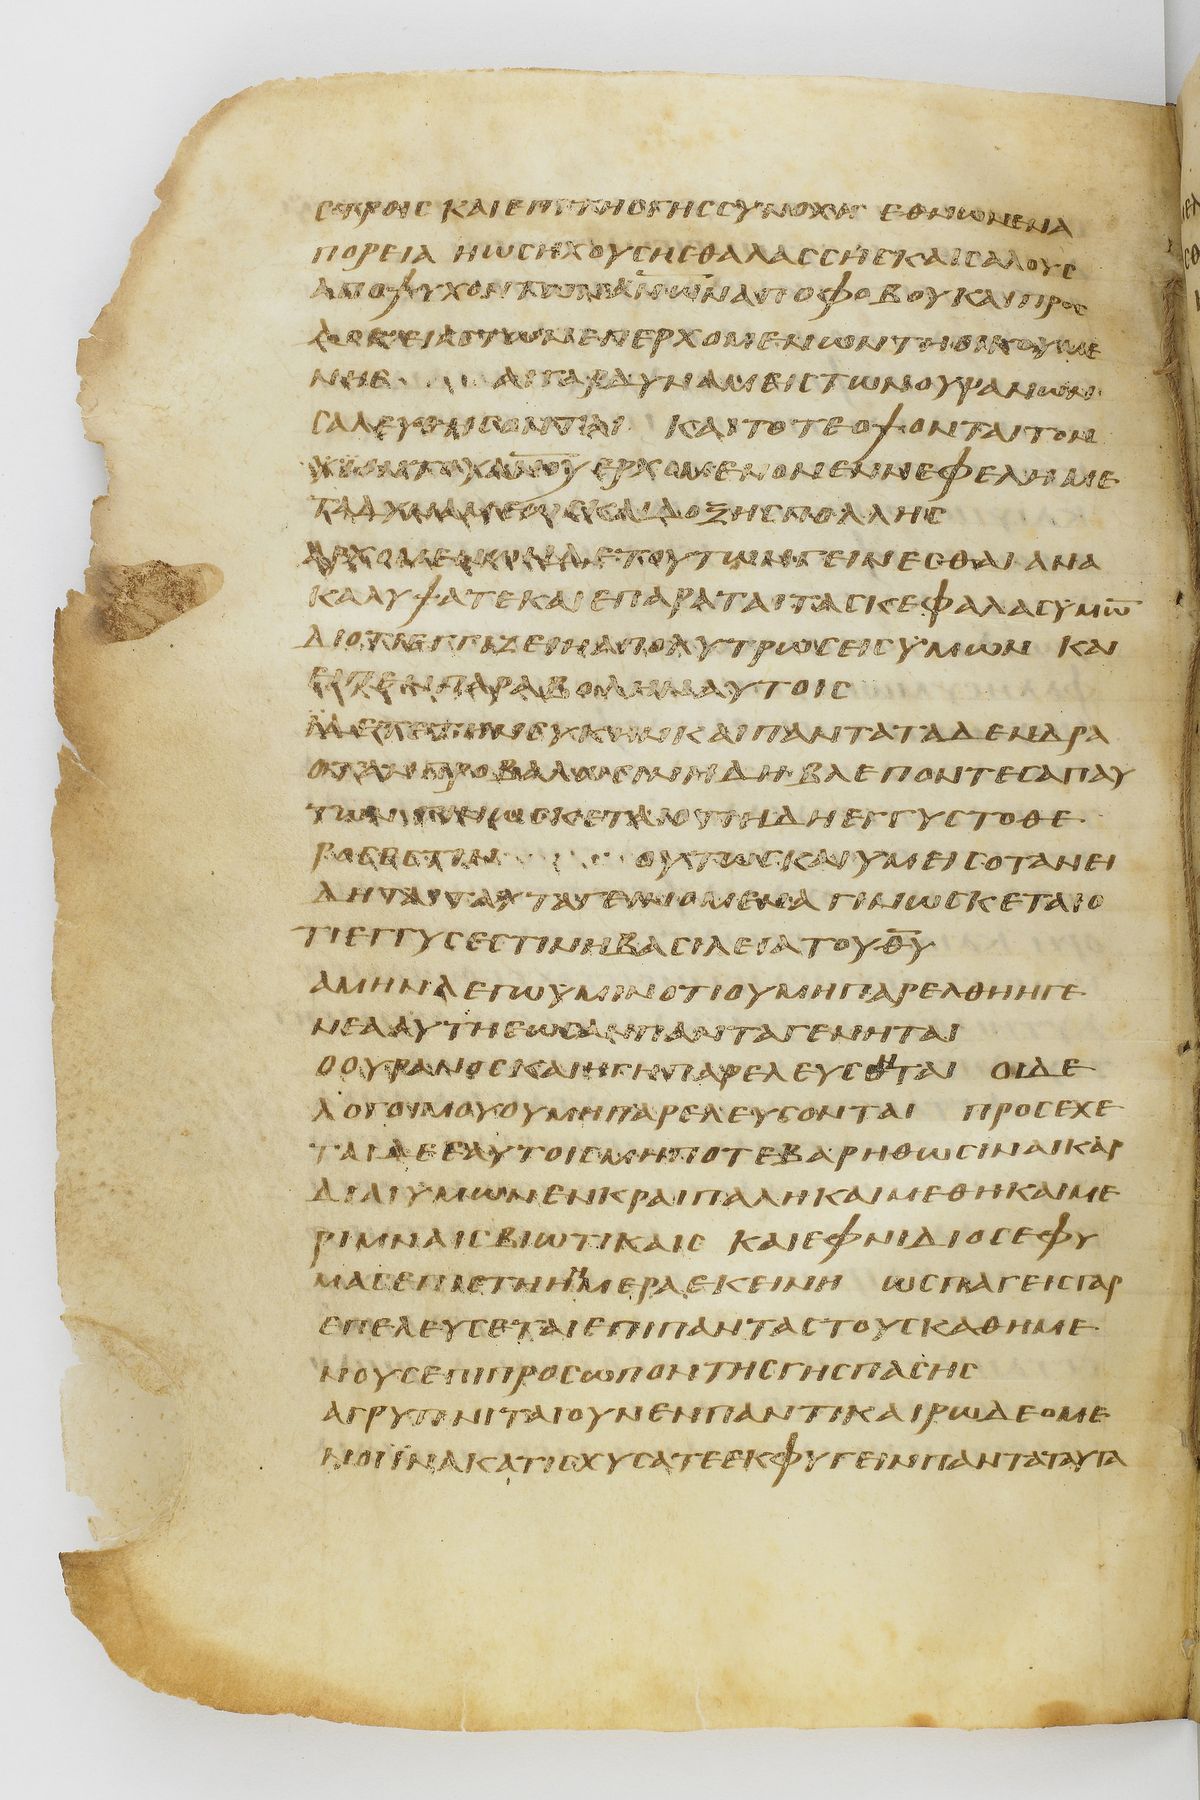 ϹΤΡΟΙϹ ΚΑΙ ΕΠΙ ΤΗϹ ΓΗϹ ϹΥΝΟΧΗ ΕΘΝΩΝ ΕΝ Α
ΠΟΡΕΙΑ ΗΩϹ ΗΧΟΥϹΗϹ ΘΑΛΑϹϹΗϹ ΚΑΙ ϹΑΛΟΥϹ
ΑΠΟΨΥΧΟΝΤΩΝ ΑΝΩΝ ΑΠΟ ΦΟΒΟΥ ΚΑΙ ΠΡΟϹ
ΔΟΚΕΙΑϹ ΤΩΝ ΕΠΕΡΧΟΜΕΝΩΝ ΤΗ ΟΙΚΟΥΜΕ
ΝΗ ΑΙ ΓΑΡ ΔΥΝΑΜΕΙϹ ΤΩΝ ΟΥΡΑΝΩΝ
ϹΑΛΕΥΘΗϹΟΝΤΑΙ ΚΑΙ ΤΟΤΕ ΟΨΟΝΤΑΙ ΤΟΝ
ΕΡΧΟΜΕΝΟΝ ΕΝ ΝΕΦΕΛΗ ΜΕ
ΤΑ ΔΥΝΑΜΕΩϹ ΚΑΙ ΔΟΞΗϹ ΠΟΛΛΗϹ
ΑΡΧΟΜΕΝΩΝ ΔΕ ΤΟΥΤΩΝ ΓΕΙΝΕϹΘΑΙ ΑΝΑ
ΚΑΛΥΨΑΤΕ ΚΑΙ ΕΠΑΡΑΤΑΙ ΤΑϹ ΚΕΦΑΛΑϹ ΥΜΩ̅
ΔΙΟΤΙ ΕΓΓΙΖΕΙ Η ΑΠΟΛΥΤΡΩϹΕΙϹ ΥΜΩΝ ΚΑΙ
ΕΙΠΕΝ ΠΑΡΑΒΟΛΗΝ ΑΥΤΟΙϹ
ΙΔΕΤΕ ΤΗΝ ϹΥΚΗΝ ΚΑΙ ΠΑΝΤΑ ΤΑ ΔΕΝΔΡΑ
ΟΤΑΝ ΠΡΟΒΑΛΩϹΙΝ ΗΔΗ ΒΛΕΠΟΝΤΕϹ ΑΠ ΑΥ
ΤΩΝ ΓΙΝΩϹΚΕΤΑΙ ΟΤΙ ΗΔΗ ΕΓΓΥϹ ΤΟ ΘΕ
ΡΟϹ ΕϹΤΙΝ ΟΥΤΩϹ ΚΑΙ ΥΜΕΙϹ ΟΤΑΝ ΕΙ
ΔΗΤΑΙ ΤΑΥΤΑ ΓΕΙΝΟΜΕΝΑ ΓΙΝΩϹΚΕΤΑΙ Ο
ΤΙ ΕΓΓΥϹ ΕϹΤΙΝ Η ΒΑϹΙΛΕΙΑ ΤΟΥ Θ̅Υ̅
ΑΜΗΝ ΛΕΓΩ ΥΜΙΝ ΟΤΙ ΟΥ ΜΗ ΠΑΡΕΛΘΗ Η ΓΕ
ΝΕΑ ΑΥΤΗ ΕΩϹ ΑΝ ΠΑΝΤΑ ΓΕΝΗΤΑΙ
Ο ΟΥΡΑΝΟϹ ΚΑΙ Η ΓΗ ΠΑΡΕΛΕΥϹΟΝΤΑΙ ΟΙ ΔΕ
ΛΟΓΟΙ ΜΟΥ ΟΥ ΜΗ ΠΑΡΕΛΕΥϹΟΝΤΑΙ ΠΡΟϹΕΧΕ
ΤΑΙ ΔΕ ΕΑΥΤΟΙϹ ΜΗΠΟΤΕ ΒΑΡΗΘΩϹΙΝ ΑΙ ΚΑΡ
ΔΙΑΙ ΥΜΩΝ ΕΝ ΚΡΑΙΠΑΛΗ ΚΑΙ ΜΕΘΗ ΚΑΙ ΜΕ
ΡΙΜΝΑΙϹ ΒΙΩΤΙΚΑΙϹ ΚΑΙ ΕΦΝΙΔΙΟϹ ΕΦ Υ
ΜΑϹ ΕΠΙϹΤΗ Η ΗΜΕΡΑ ΕΚΕΙΝΗ ΩϹ ΠΑΓΕΙϹ ΓΑΡ
ΕΠΕΛΕΥϹΕΤΑΙ ΕΠΙ ΠΑΝΤΑϹ ΤΟΥϹ ΚΑΘΗΜΕ
ΝΟΥϹ ΕΠΙ ΠΡΟϹΩΠΟΝ ΤΗϹ ΓΗϹ ΠΑϹΗϹ
ΑΓΡΥΠΝΙΤΑΙ ΟΥΝ ΕΝ ΠΑΝΤΙ ΚΑΙΡΩ ΔΕΟΜΕ
ΝΟΙ ΙΝΑ ΚΑΤΙϹΧΥϹΑΤΕ ΕΚΦΥΓΕΙΝ ΠΑΝΤΑ ΤΑΥΤΑ